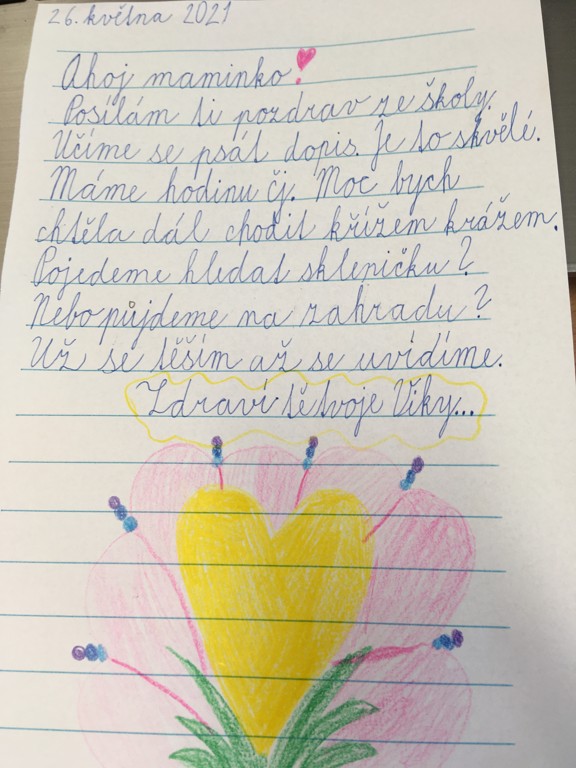 26. května 2021
Ahoj maminko!
Posílám ti pozdrav ze školy.
Učíme se psát dopis. Je to skvělé.
Máme hodinu čj. Moc bych
chtěla dál chodit křížem krážem.
Pojedeme hledat skleničku?
Nebo půjdeme na zahradu?
Už se těším až se uvidíme.
Zdraví tě tvoje Viky...